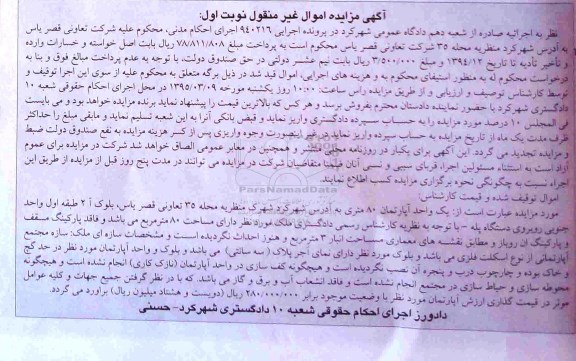 آگهی مزایده اموال غیر منقول نوبت اول:
نظر به اجرائیه صادره از شعبه دهم دادگاه عمومی شهرکرد در پرونده اجرایی ۹۴۰۲۱۶ اجرای احکام مدنی، محکوم علیه شرکت تعاونی قصر یاس
به آدرس شهرکرد منظریه محله ۳۵ شرکت تعاونی قصر یاس محکوم است به پرداخت مبلغ ۷۸/۸۱۱/۸۰۸ ریال بابت اصل خواسته و خسارات وارده
و تأخیر تأدیه تا تاریخ ۱۳۹۴/۱۲ و مبلغ ۳/۵۰۰/۰۰۰ ریال بابت نیم عشر دولتی در حق صندوق دولت، با توجه به عدم پرداخت مبالغ فوق و بنا به
درخواست محکوم له به منظور استیفای محکوم به و هزینه های اجرایی، اموال قید شده در ذیل برگه متعلق به محکوم علیه از سوی این اجرا توقیف و
توسط کارشناس توصیف و ارزیابی و از طریق مزایده راس ساعت: ۱۰:۰۰ روز یکشنبه مورخه ۱۳۹۵/۰۳/۰۹ در محل اجرای احکام حقوقی شعبه ۱۰
دادگستری شهرکرد با حضور نماینده دادستان محترم بفروش برسد و هر کس که بالاترین قیمت را پیشنهاد نماید برنده مزایده خواهد بود و می بایست
فی المجلس ۱۰ درصد مورد مزایده را به حساب سپرده دادگستری واریز نماید و قبض بانکی آنرا به این شعبه تسلیم نماید و مابقی مبلغ را حداکثر
ظرف مدت یک ماه از تاریخ مزایده به حساب سپرده واریز نماید در غیر اینصورت وجوه واریزی پس از کسر هزینه مزایده به نفع صندوق دولت ضبط
و مزایده تجدید می گردد. این آگهی برای یکبار در روزنامه محلی نشر و همچنین در معابر عمومی الصاق خواهد شد شرکت در مزایده برای عموم
آزاد است به استثناء مسئولین اجراء، قربای سببی و نسبی آنان ضمنا متقاضیان شرکت در مزایده می توانند در مدت پنج روز قبل از مزایده از طریق این
اجراء نسبت به چگونگی نحوه برگزاری مزایده کسب اطلاع نمایند.
اموال توقیف شده و قیمت کارشناس:
مورد مزایده عبارت است از: یک واحد آپارتمان ۸۰ متری به آدرس شهرکرد شهرک منظریه محله ۳۵ تعاونی قصر یاس، بلوک آ ۲ طبقه اول واحد
جنوبی روبروی دستگاه پله - با توجه به نظریه کارشناس رسمی دادگستری ملک مورد نظر دارای مساحت ۸۰ مترمربع می باشد و فاقد پارکینگ مسقف
و پارکینگ آن روباز و مطابق نقشه های معماری مساحت انبار ۳ مترمربع و هنوز احداث نگردیده است و مشخصات سازه ای ملک: سازه مجتمع
آپارتمانی از نوع اسکلت فلزی می باشد و بلوک مورد نظر دارای نمای آجر پلاک (سه سانتی) می باشد و بلوک و واحد آپارتمان مورد نظر در حد گچ
و خاک بوده و چارچوب درب و پنجره آن نصب نگردیده است و هیچگونه کف سازی در واحد آپارتمان (نازک کاری) انجام نشده است و هیچگونه
محوطه سازی و حیاط سازی در مجتمع انجام نشده است و فاقد انشعاب آب و برق و گاز می باشد. که با در نظر گرفتن جمیع جهات و کلیه عوامل
موثر در قیمت گذاری ارزش آپارتمان مورد نظر با وضعیت موجود برابر ۲۸۰/۰۰۰/۰۰۰ ریال (دویست و هشتاد میلیون ریال) برآورد می گردد.
دادورز اجرای احکام حقوقی شعبه ۱۰ دادگستری شهرکرد - حسنی
ParsNamadData